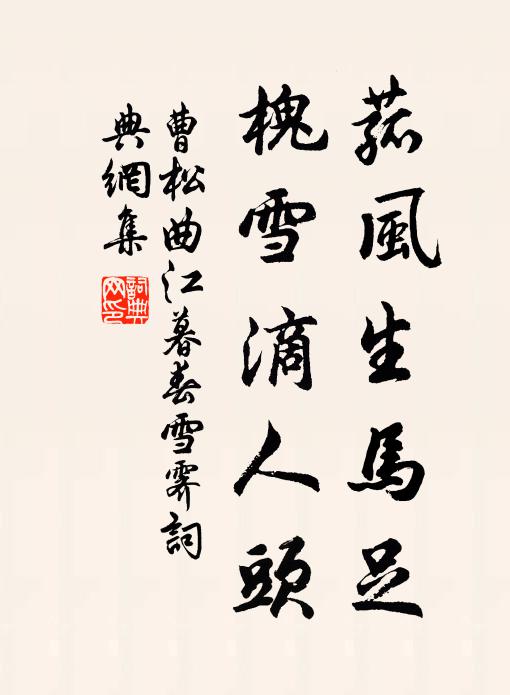 菰風生馬足
槐雪滴人頭
曹松曲江暮春雪霽詞
典網集
詞典
网印